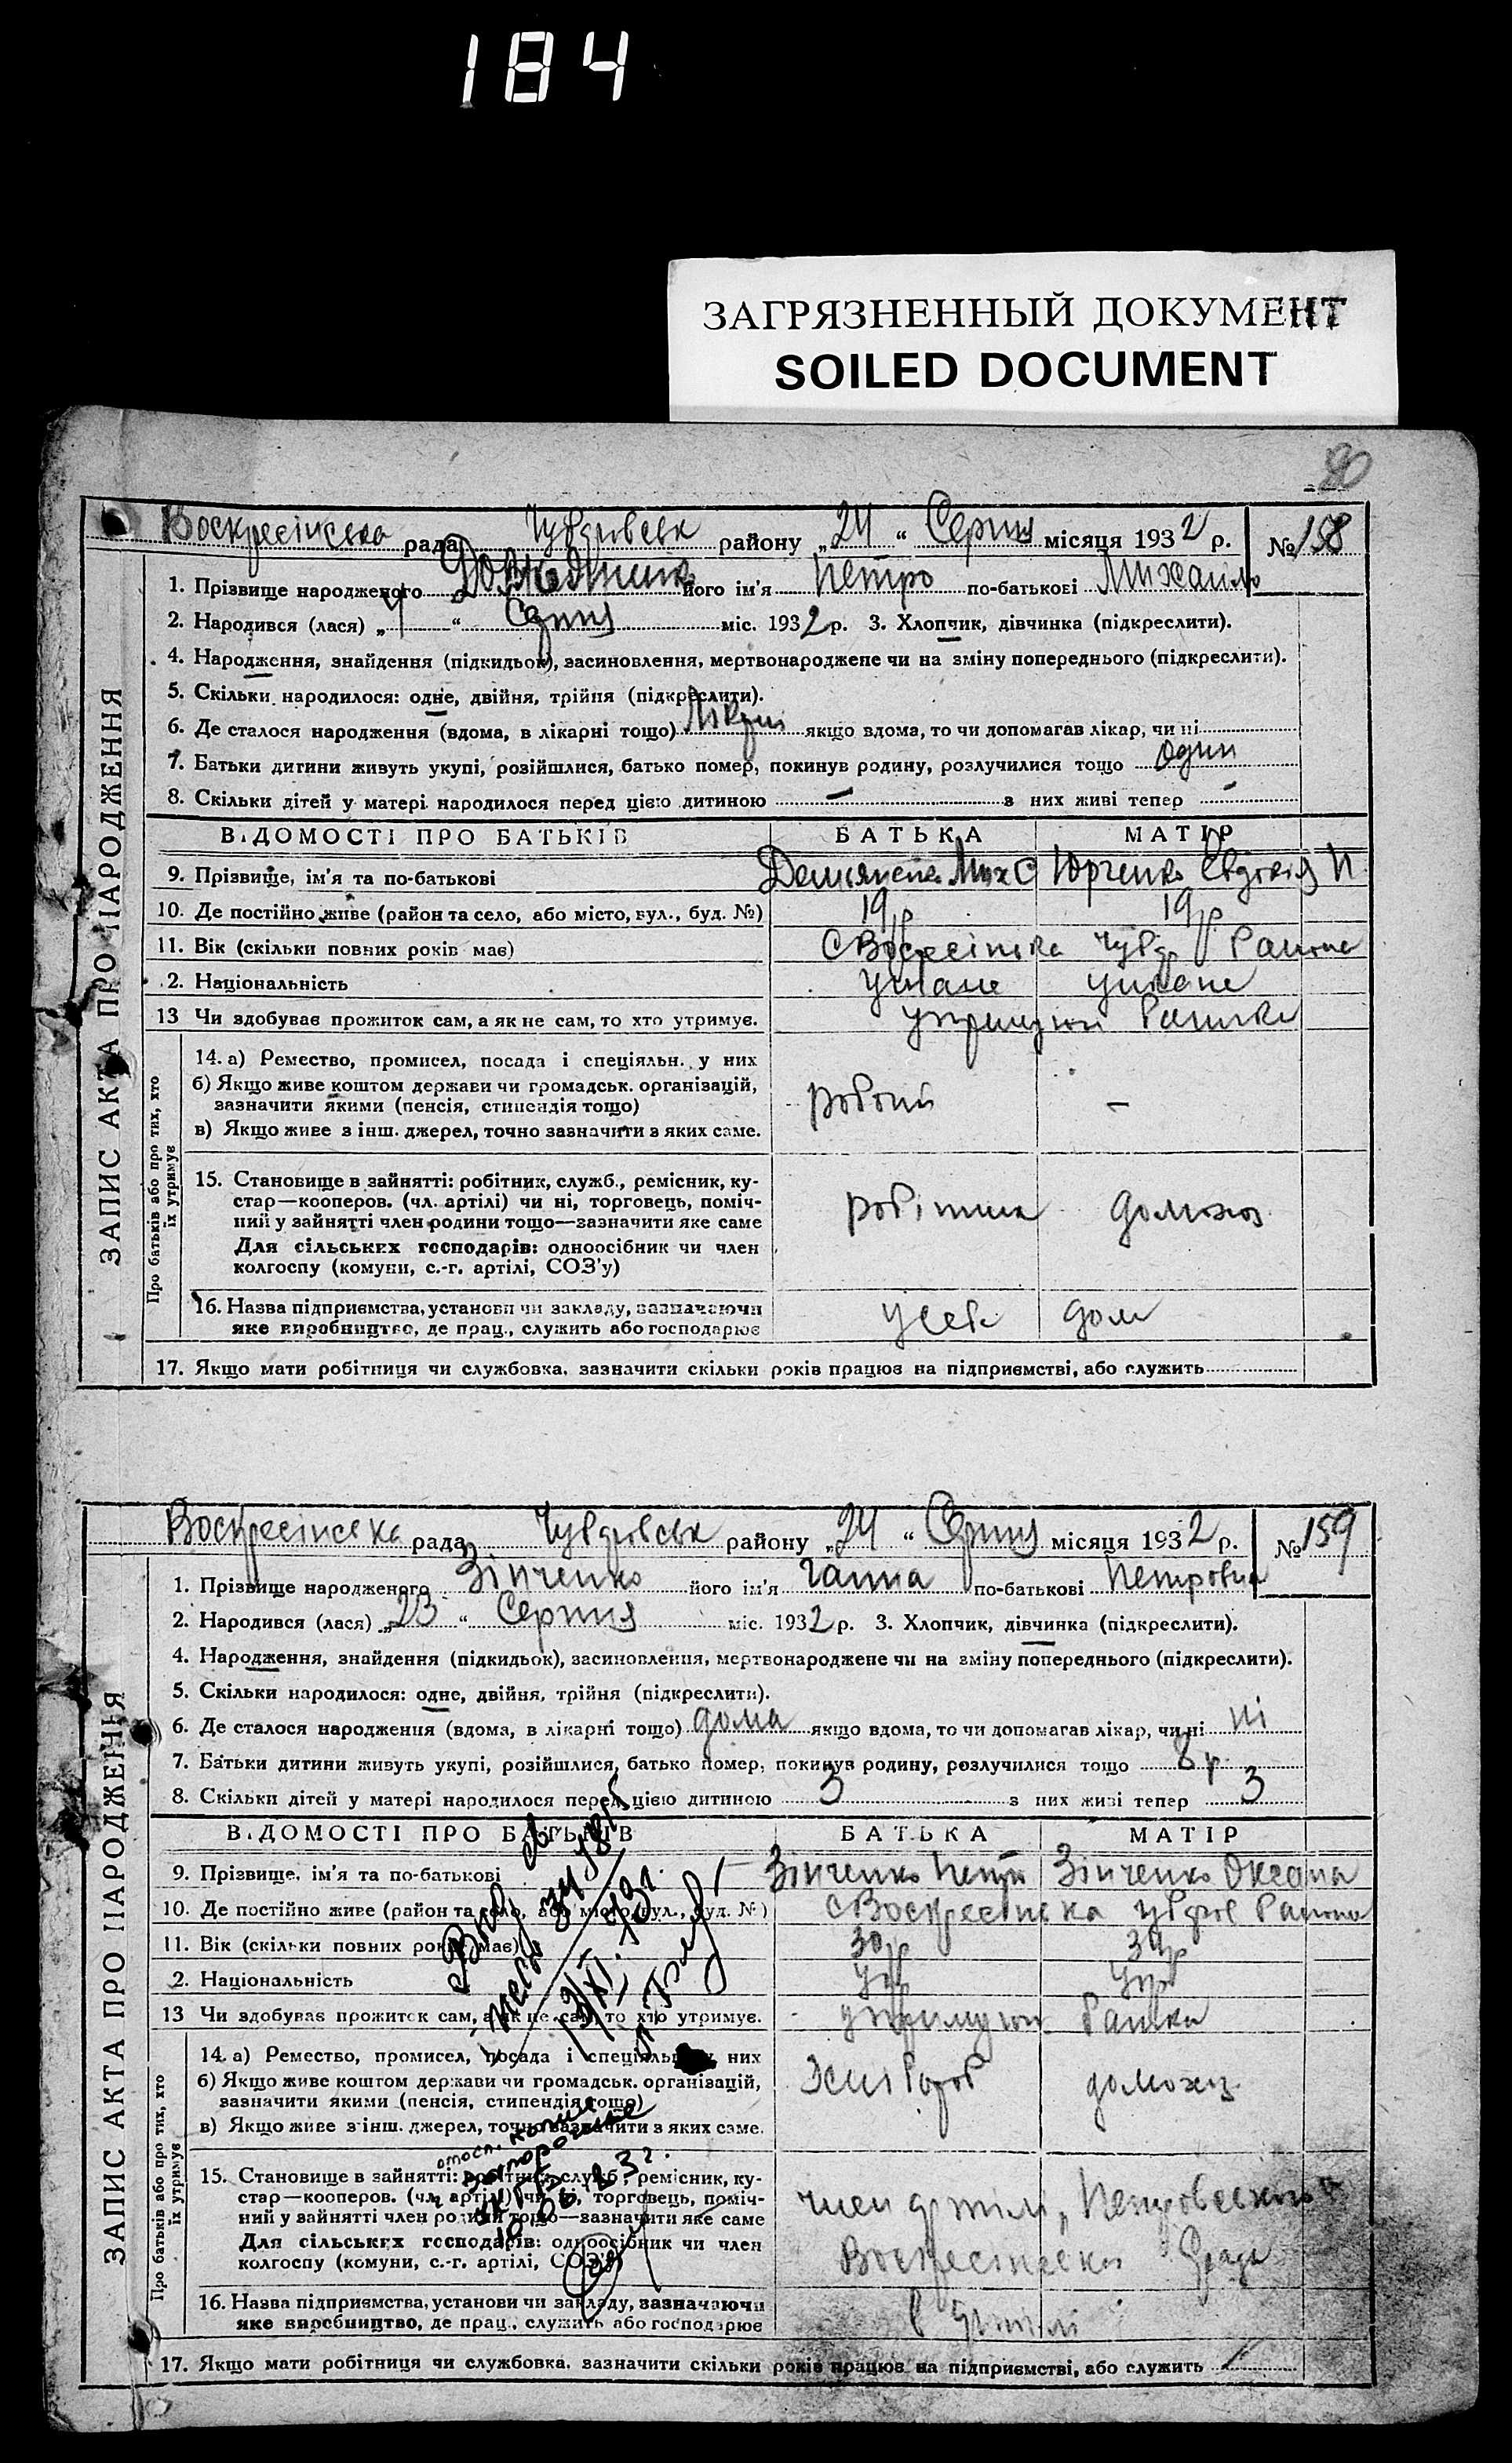 184
ЗАГРЯЗНЕННЫЙ ДОКУМЕНТ
SOILED DOCUMENT
ЗАПИС АКТА ПРО НАРОДЖЕННЯ
Воскресінська рада Чубарівськ району „24“ Серпня місяця 1932 р. № 158
1. Прізвище народженого його ім'я Петро по-батькові Михайло
2. Народився (лася) „4“ Серпня міс. 1932 р. 3. Хлопчик, дівчинка (підкреслити).
4. Народження, знайдення (підкидьок), засиновлення, мертвонароджене чи на зміну попереднього (підкреслити).
5. Скільки народилося: одне, двійня, трійня (підкреслити).
6. Де сталося народження (вдома, в лікарні тощо) якщо вдома, то чи допомагав лікар, чи ні
7. Батьки дитини живуть укупі, розійшлися, батько помер, покинув родину, розлучилися тощо один
8. Скільки дітей у матері народилося перед цією дитиною — з них живі тепер —
ВІДОМОСТІ ПРО БАТЬКІВ БАТЬКА МАТІР
9. Прізвище, ім'я та по-батькові Мих С Юрченко Євдокія П
10. Де постійно живе (район та село, або місто, вул., буд. №) 19 р 19 р
11. Вік (скільки повних років має) С Воскресінка Чубар Района
2. Національність
13 Чи здобуває прожиток сам, а як не сам, то хто утримує.
Про батьків або про тих, хто їх утримує
14. а) Ремество, промисел, посада і спеціяльн. у них
б) Якщо живе коштом держави чи громадськ. організацій,
зазначити якими (пенсія, стипендія тощо) —
в) Якщо живе з інш. джерел, точно зазначити з яких саме.
15. Становище в зайнятті: робітник, служб., ремісник, ку-
стар—кооперов. (чл. артілі) чи ні, торговець, поміч-
ний у зайнятті член родини тощо—зазначити яке саме робітник домохоз
Для сільських господарів: одноосібник чи член
колгоспу (комуни, с.-г. артілі, СОЗ'у)
16. Назва підприємства, установи чи закладу, зазначаючи
яке виробництво, де прац., служить або господарює дом
17. Якщо мати робітниця чи службовка, зазначити скільки років працює на підприємстві, або служить
ЗАПИС АКТА ПРО НАРОДЖЕННЯ
Воскресінська рада Чубарівськ району „24“ Серпня місяця 1932 р. № 159
1. Прізвище народженого Зінченко його ім'я Ганна по-батькові Петровна
2. Народився (лася) „23“ Серпня міс. 1932 р. 3. Хлопчик, дівчинка (підкреслити).
4. Народження, знайдення (підкидьок), засиновлення, мертвонароджене чи на зміну попереднього (підкреслити).
5. Скільки народилося: одне, двійня, трійня (підкреслити).
6. Де сталося народження (вдома, в лікарні тощо) дома якщо вдома, то чи допомагав лікар, чи ні ні
7. Батьки дитини живуть укупі, розійшлися, батько помер, покинув родину, розлучилися тощо 8 р
8. Скільки дітей у матері народилося перед цією дитиною 3 з них живі тепер 3
ВІДОМОСТІ ПРО БАТЬКІВ БАТЬКА МАТІР
9. Прізвище, ім'я та по-батькові Зінченко Петр Зінченко Оксана
10. Де постійно живе (район та село, або місто, вул., буд. №) С Воскресінка Чубар Района
11. Вік (скільки повних років має) 30 р
2. Національність Укр Укр
13 Чи здобуває прожиток сам, а як не сам, то хто утримує.
Про батьків або про тих, хто їх утримує
14. а) Ремество, промисел, посада і спеціяльн. у них
б) Якщо живе коштом держави чи громадськ. організацій,
зазначити якими (пенсія, стипендія тощо) домохоз
в) Якщо живе з інш. джерел, точно зазначити з яких саме.
15. Становище в зайнятті: робітник, служб., ремісник, ку-
стар—кооперов. (чл. артілі) чи ні, торговець, поміч-
ний у зайнятті член родини тощо—зазначити яке саме член артілі „Петровського“
Для сільських господарів: одноосібник чи член
колгоспу (комуни, с.-г. артілі, СОЗ'у) Воскресінської
16. Назва підприємства, установи чи закладу, зазначаючи
яке виробництво, де прац., служить або господарює в артілі
17. Якщо мати робітниця чи службовка, зазначити скільки років працює на підприємстві, або служить —